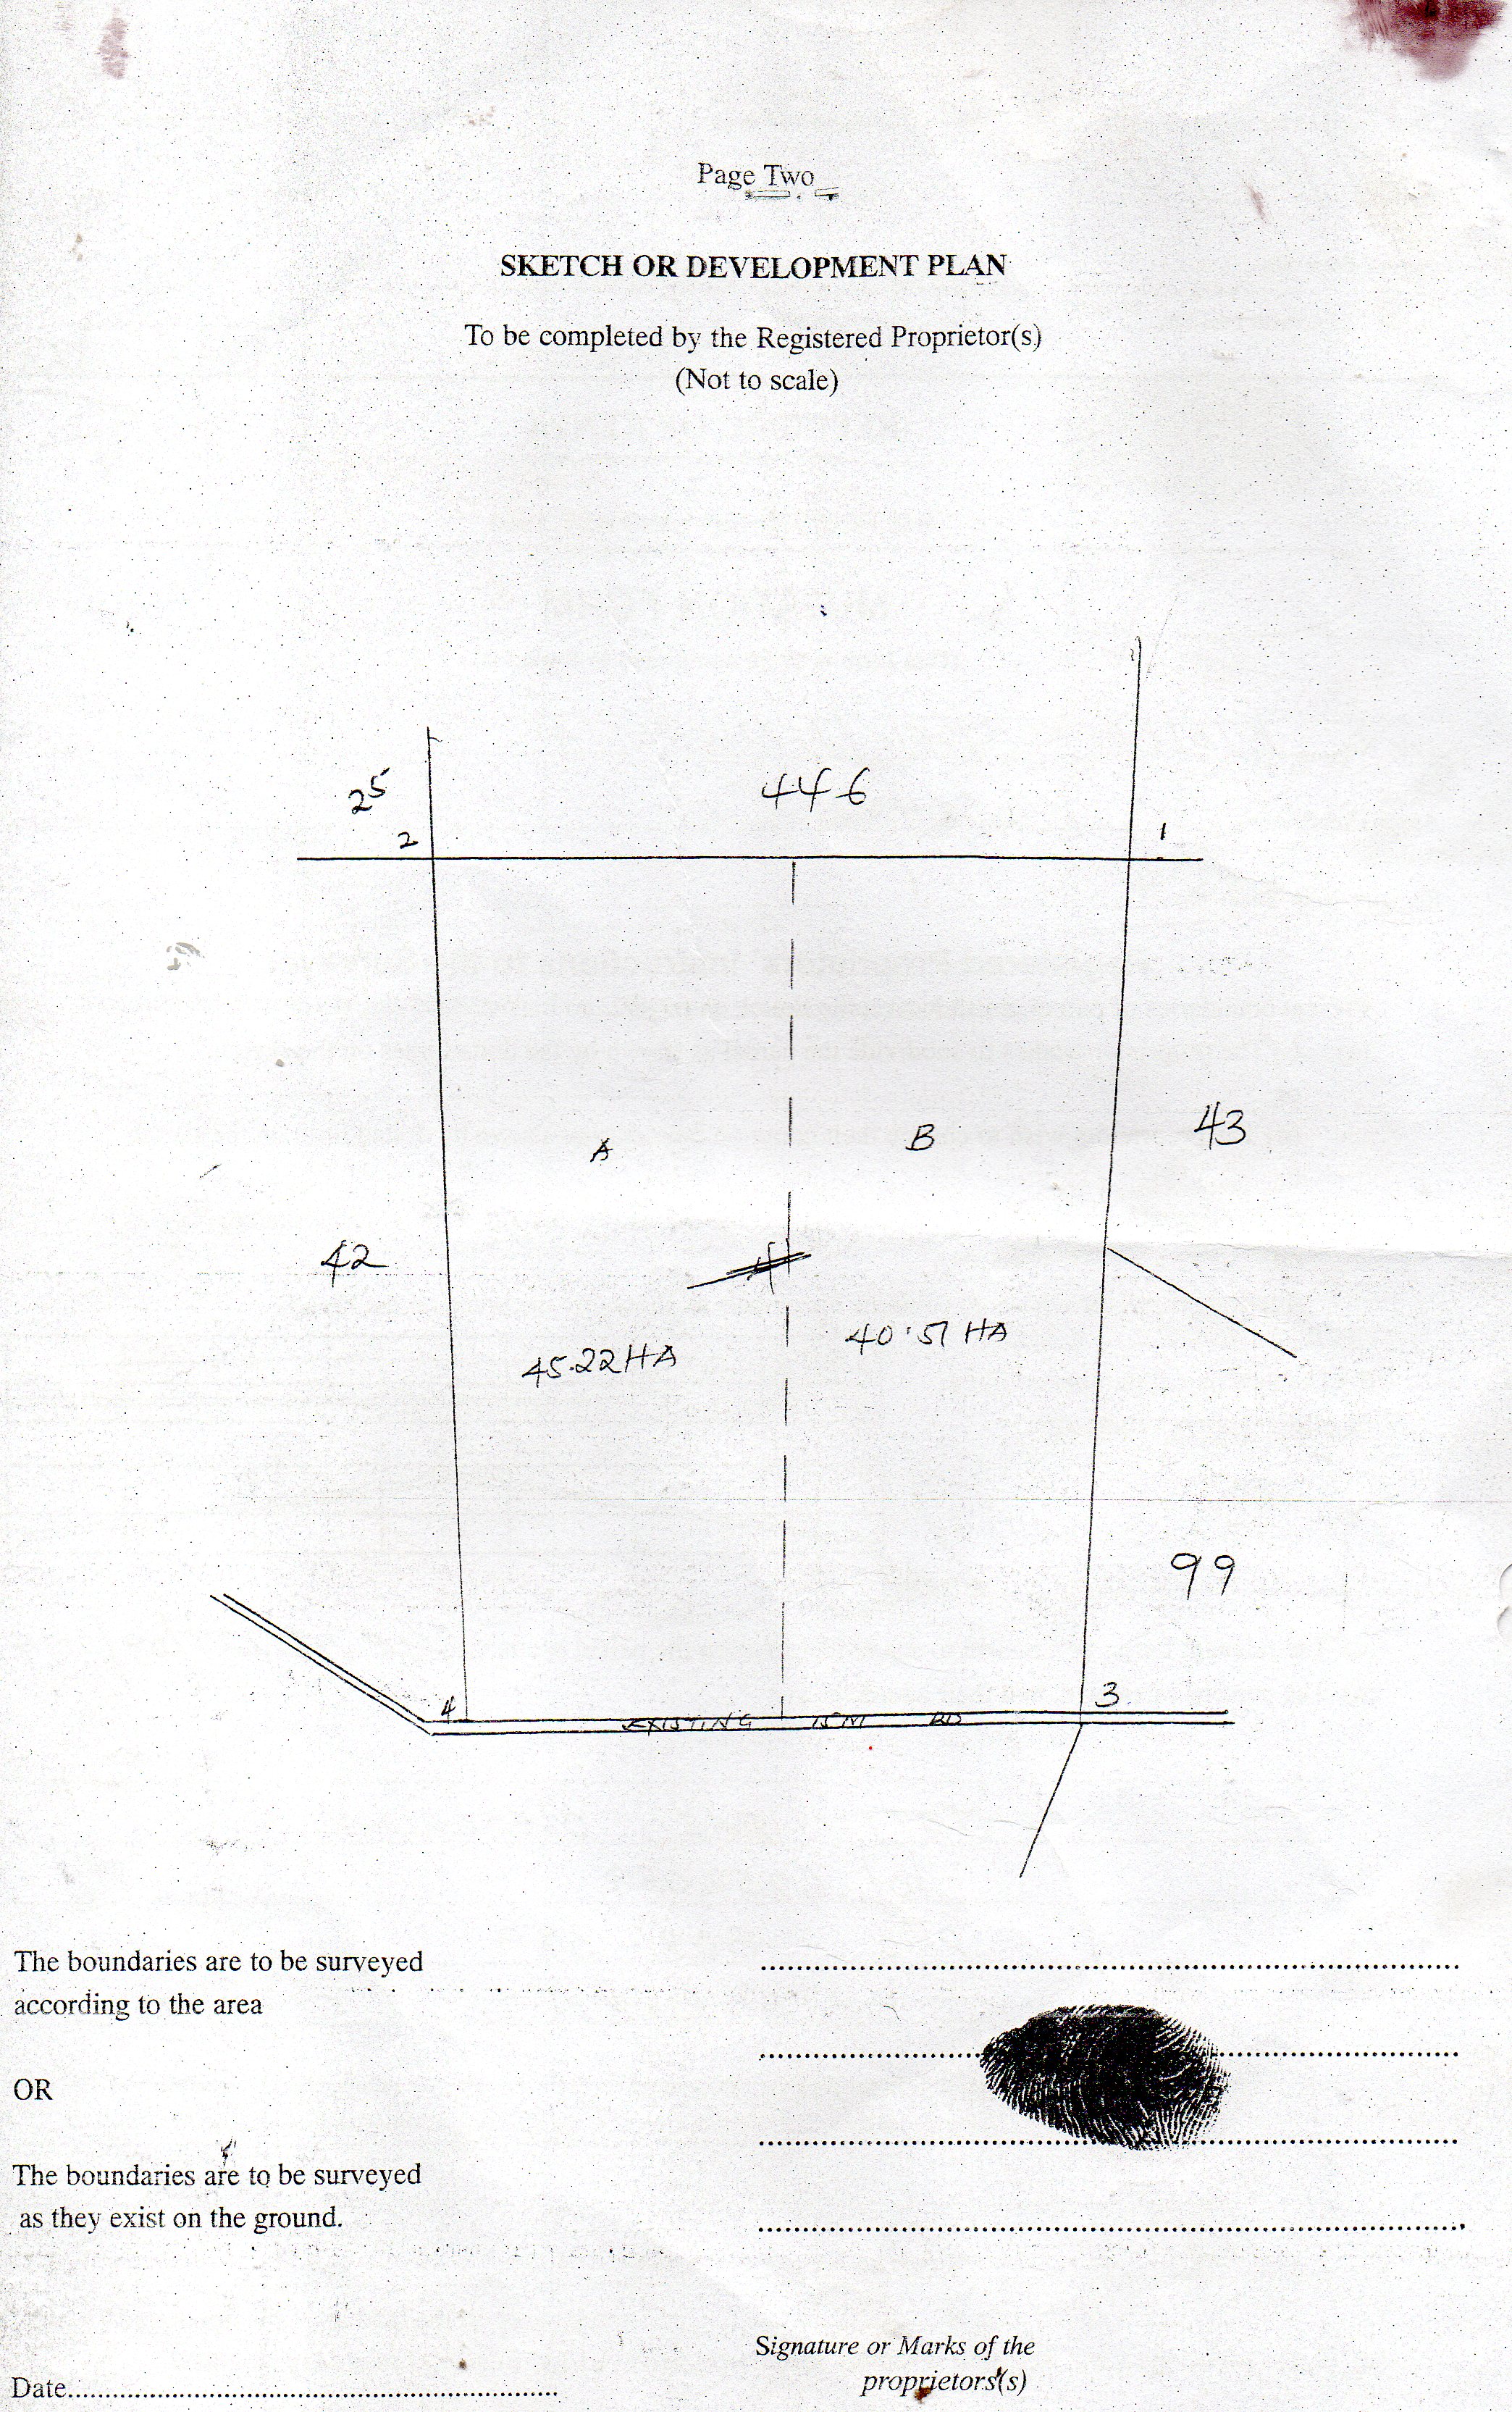 Page Two
SKETCH OR DEVELOPMENT PLAN
To be completed by the Registered Proprietor(s)
(Not to scale)
25
446
2
1
A
B
43
42
45.22HA
40.51 HA
99
4
3
EXISTING 15M RD
The boundaries are to be surveyed
according to the area
OR
The boundaries are to be surveyed
as they exist on the ground.
Signature or Marks of the
proprietors'(s)
Date